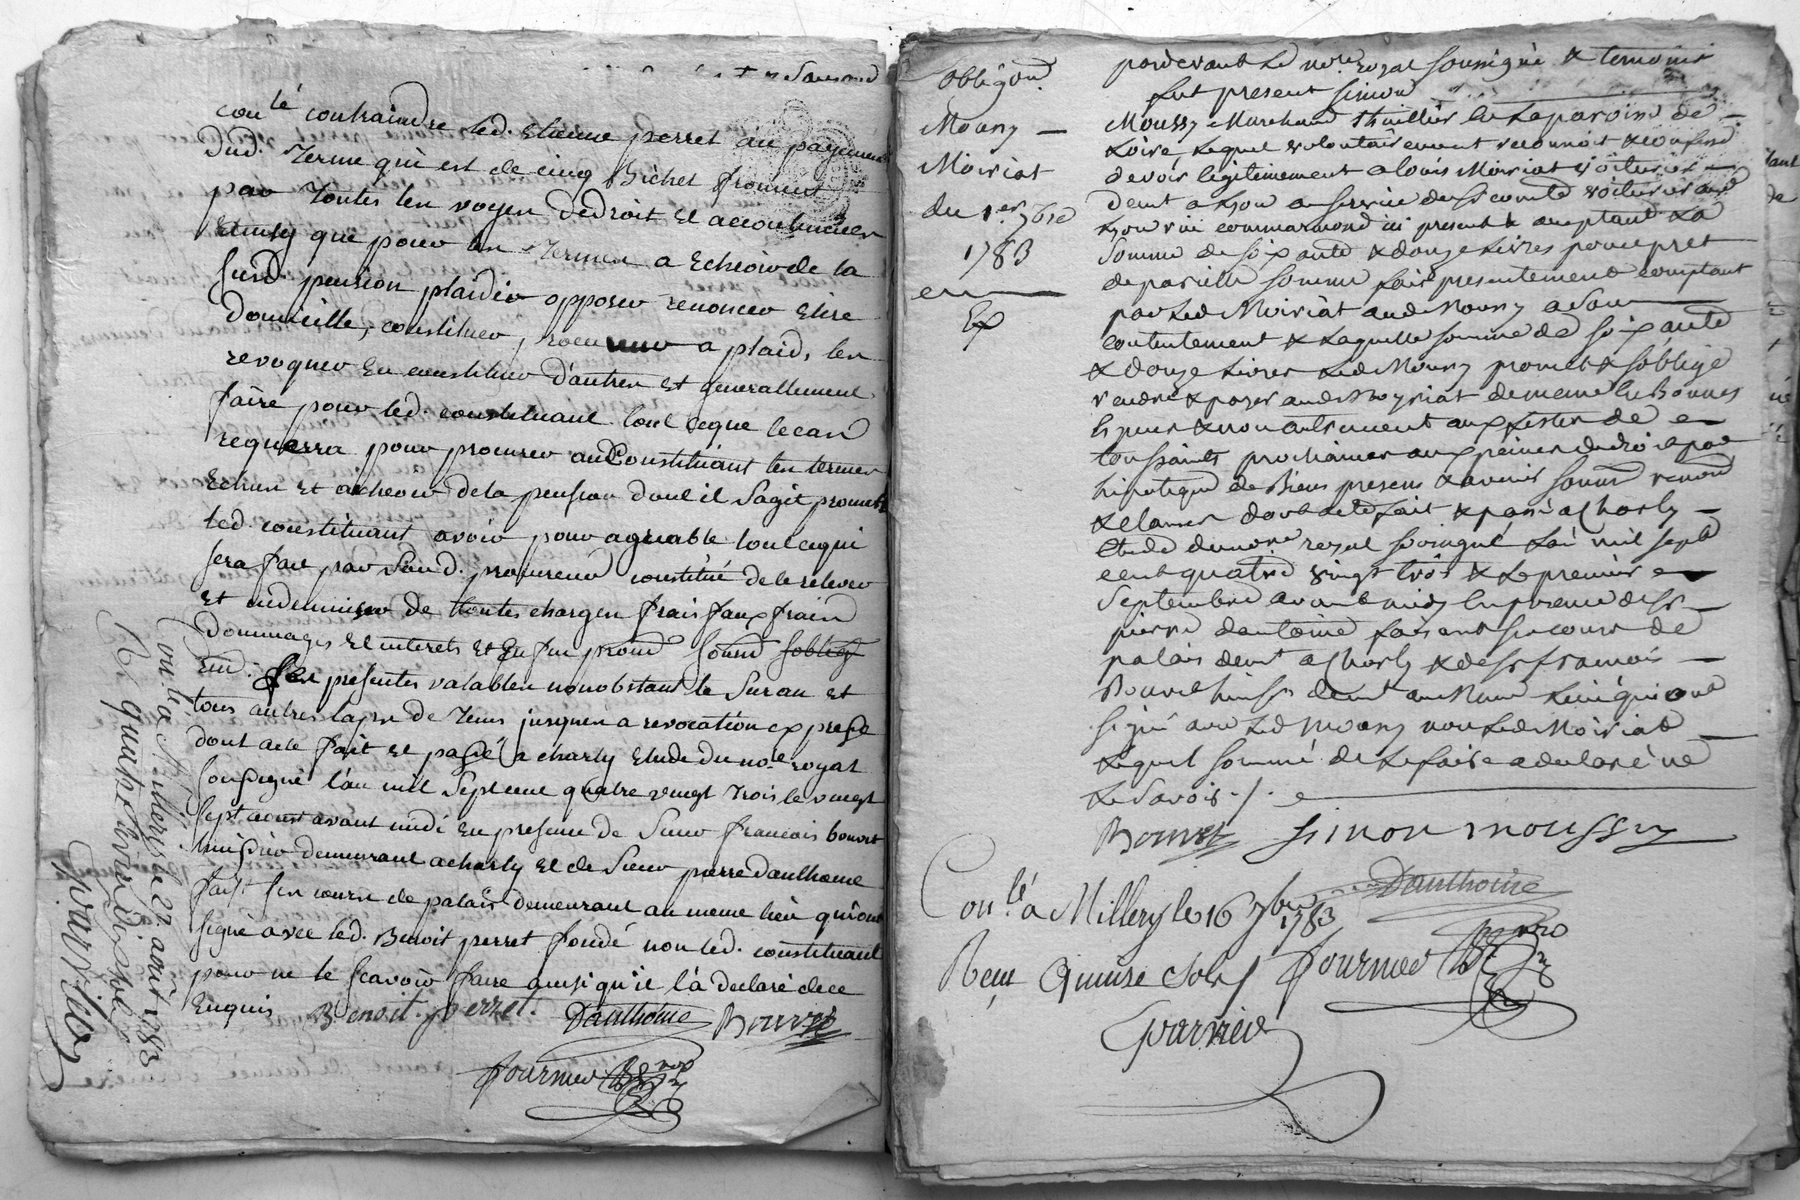 conté contraindre led. Etienne perret au payement
Dud. terme qui est de cinq Bichet froment
par toutes les voyes dedroit et accoutumées
Etinsy que pour les termes a Echeoir de la
susd. pension plaider opposer renoncer Elire
Domicille, constituer procureur a plaid, les
revoquer En constituer d'autres et generallement
faire pour led. constituant tout ceque lecas
requerra pour procurer aud Constituant les termes
Echus Et acheoir dela pension dont il sagit promet
led. constituant avoir pour agreable tout cequi
sera fait par sond. procureur constitué dele relever
Et indemniser de toutes charges frais faux frais
Dommages Et interets Et En fin promd soumd soblig
End. Ses presentes valables nonobstant le suran et
tous autres laps de tems jusques a revocation expresse
dont acte fait et passé a charly Etude du nore royal
soussigné l'an mil sept cent quatre vingt trois le vingt
sept aoust avant midi En presence de sieur francois bouvet
huissier demeurant acharly Et de sieur pierre dauthoine
fait ses cours de palais demeurant au meme lieu qui ont
signé avec led. Benoit perret fondé non led. constituant
pour ne le scavoir faire ainsi qu'il là declaré dece
Enquis
Benoit perret
Dauthoine
Bouvet
fournier
Conté a Millery le 27 août 1783
Rt quatre livres dix sols
Gparnier
Obligaon
Moussy —
Moiriat
du 1er 7bre
1783
Ex
pardevant Le nore royal soussigné & temoins
fut present simon
Moussy Marchand thuillier de La paroisse de —
Loire, Lequel volontairement reconnoit & confesse
devoir legitimement a louis Moiriat voiturier —
demt a Lyon au service du sr comte voiturier aud
Lyon ici present & acceptant La
somme de soixante & douze Livres pour pret
de pareille somme fait presentement comptant
par Led Moiriat aud Moussy a son
contentement & Laquelle somme de soixante
& douze Livres Led Moussy promet & s'oblige
rendre & payer aud Moyriat de meme En Bonnes
Especes & non autrement aux festes de
toussaints prochaines aux peines de droit par
hipoteque de Biens presens & avenir soumd renond
& clauses dont acte fait & passé a Charly —
Etude du nore royal soussigné L'an mil sept
cent quatre vingt trois & Le premier
Septembre avant midy En presence de sr —
pierre dautoine faisant ses cours de
palais demt a Charly & de sr francois —
Bouvet huissr demt au meme Lieu qui ont
signé avec Led Moussy non Led Moiriat —
Lequel sommé de Le faire a declaré ne
Le savoir ./.
Bouvet
simon moussy
Dauthoine
Conté a Millery le 16 7bre 1783
Reçu Quinze Sols
fournier
Gparnier